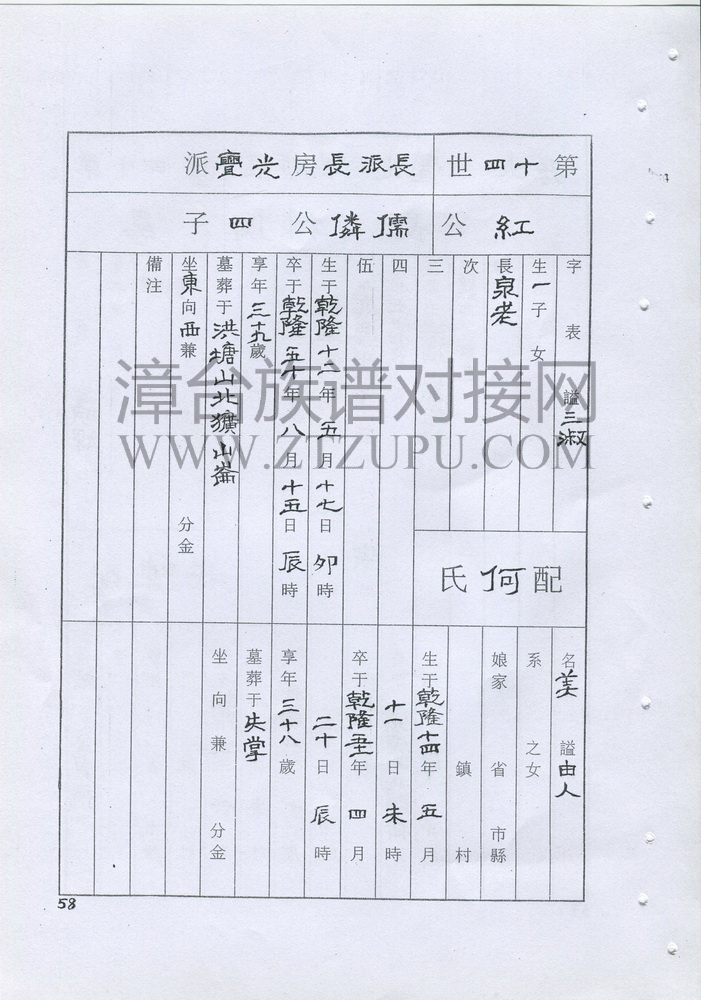 第十四世
長派長房光亹派
紅公
儒僯公四子
字 表 諡三淑
生一子 女
長泉老
次
三
四
伍
生于乾隆十二年五月十七日卯時
卒于乾隆五十年八月十五日辰時
享年三十九歲
墓葬于洪塘山北獷山崙
坐東向西兼 分金
備注
配何氏
名美 諡由人
系 之女
娘家 省 市縣
鎮 村
生于乾隆十四年五月
十一日未時
卒于乾隆五十一年四月
二十日辰時
享年三十八歲
墓葬于失掌
坐向兼 分金
58
漳台族谱对接网
WWW.ZTZUPU.COM